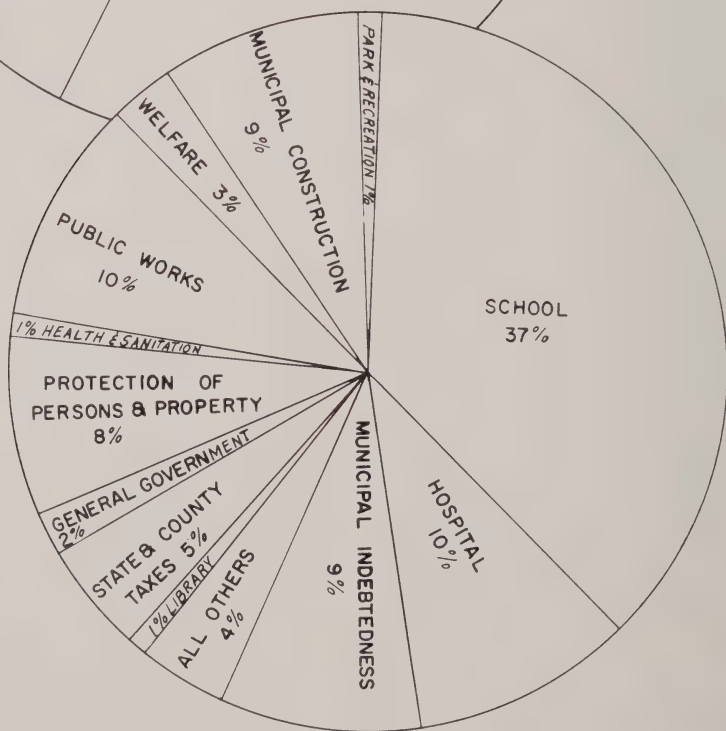 PARK & RECREATION 1%
SCHOOL
37%
HOSPITAL
10%
MUNICIPAL INDEBTEDNESS
9%
ALL OTHERS
4%
1% LIBRARY
STATE & COUNTY
TAXES 5%
GENERAL GOVERNMENT
2%
PROTECTION OF
PERSONS & PROPERTY
8%
1% HEALTH & SANITATION
PUBLIC WORKS
10%
WELFARE 3%
MUNICIPAL CONSTRUCTION
9%